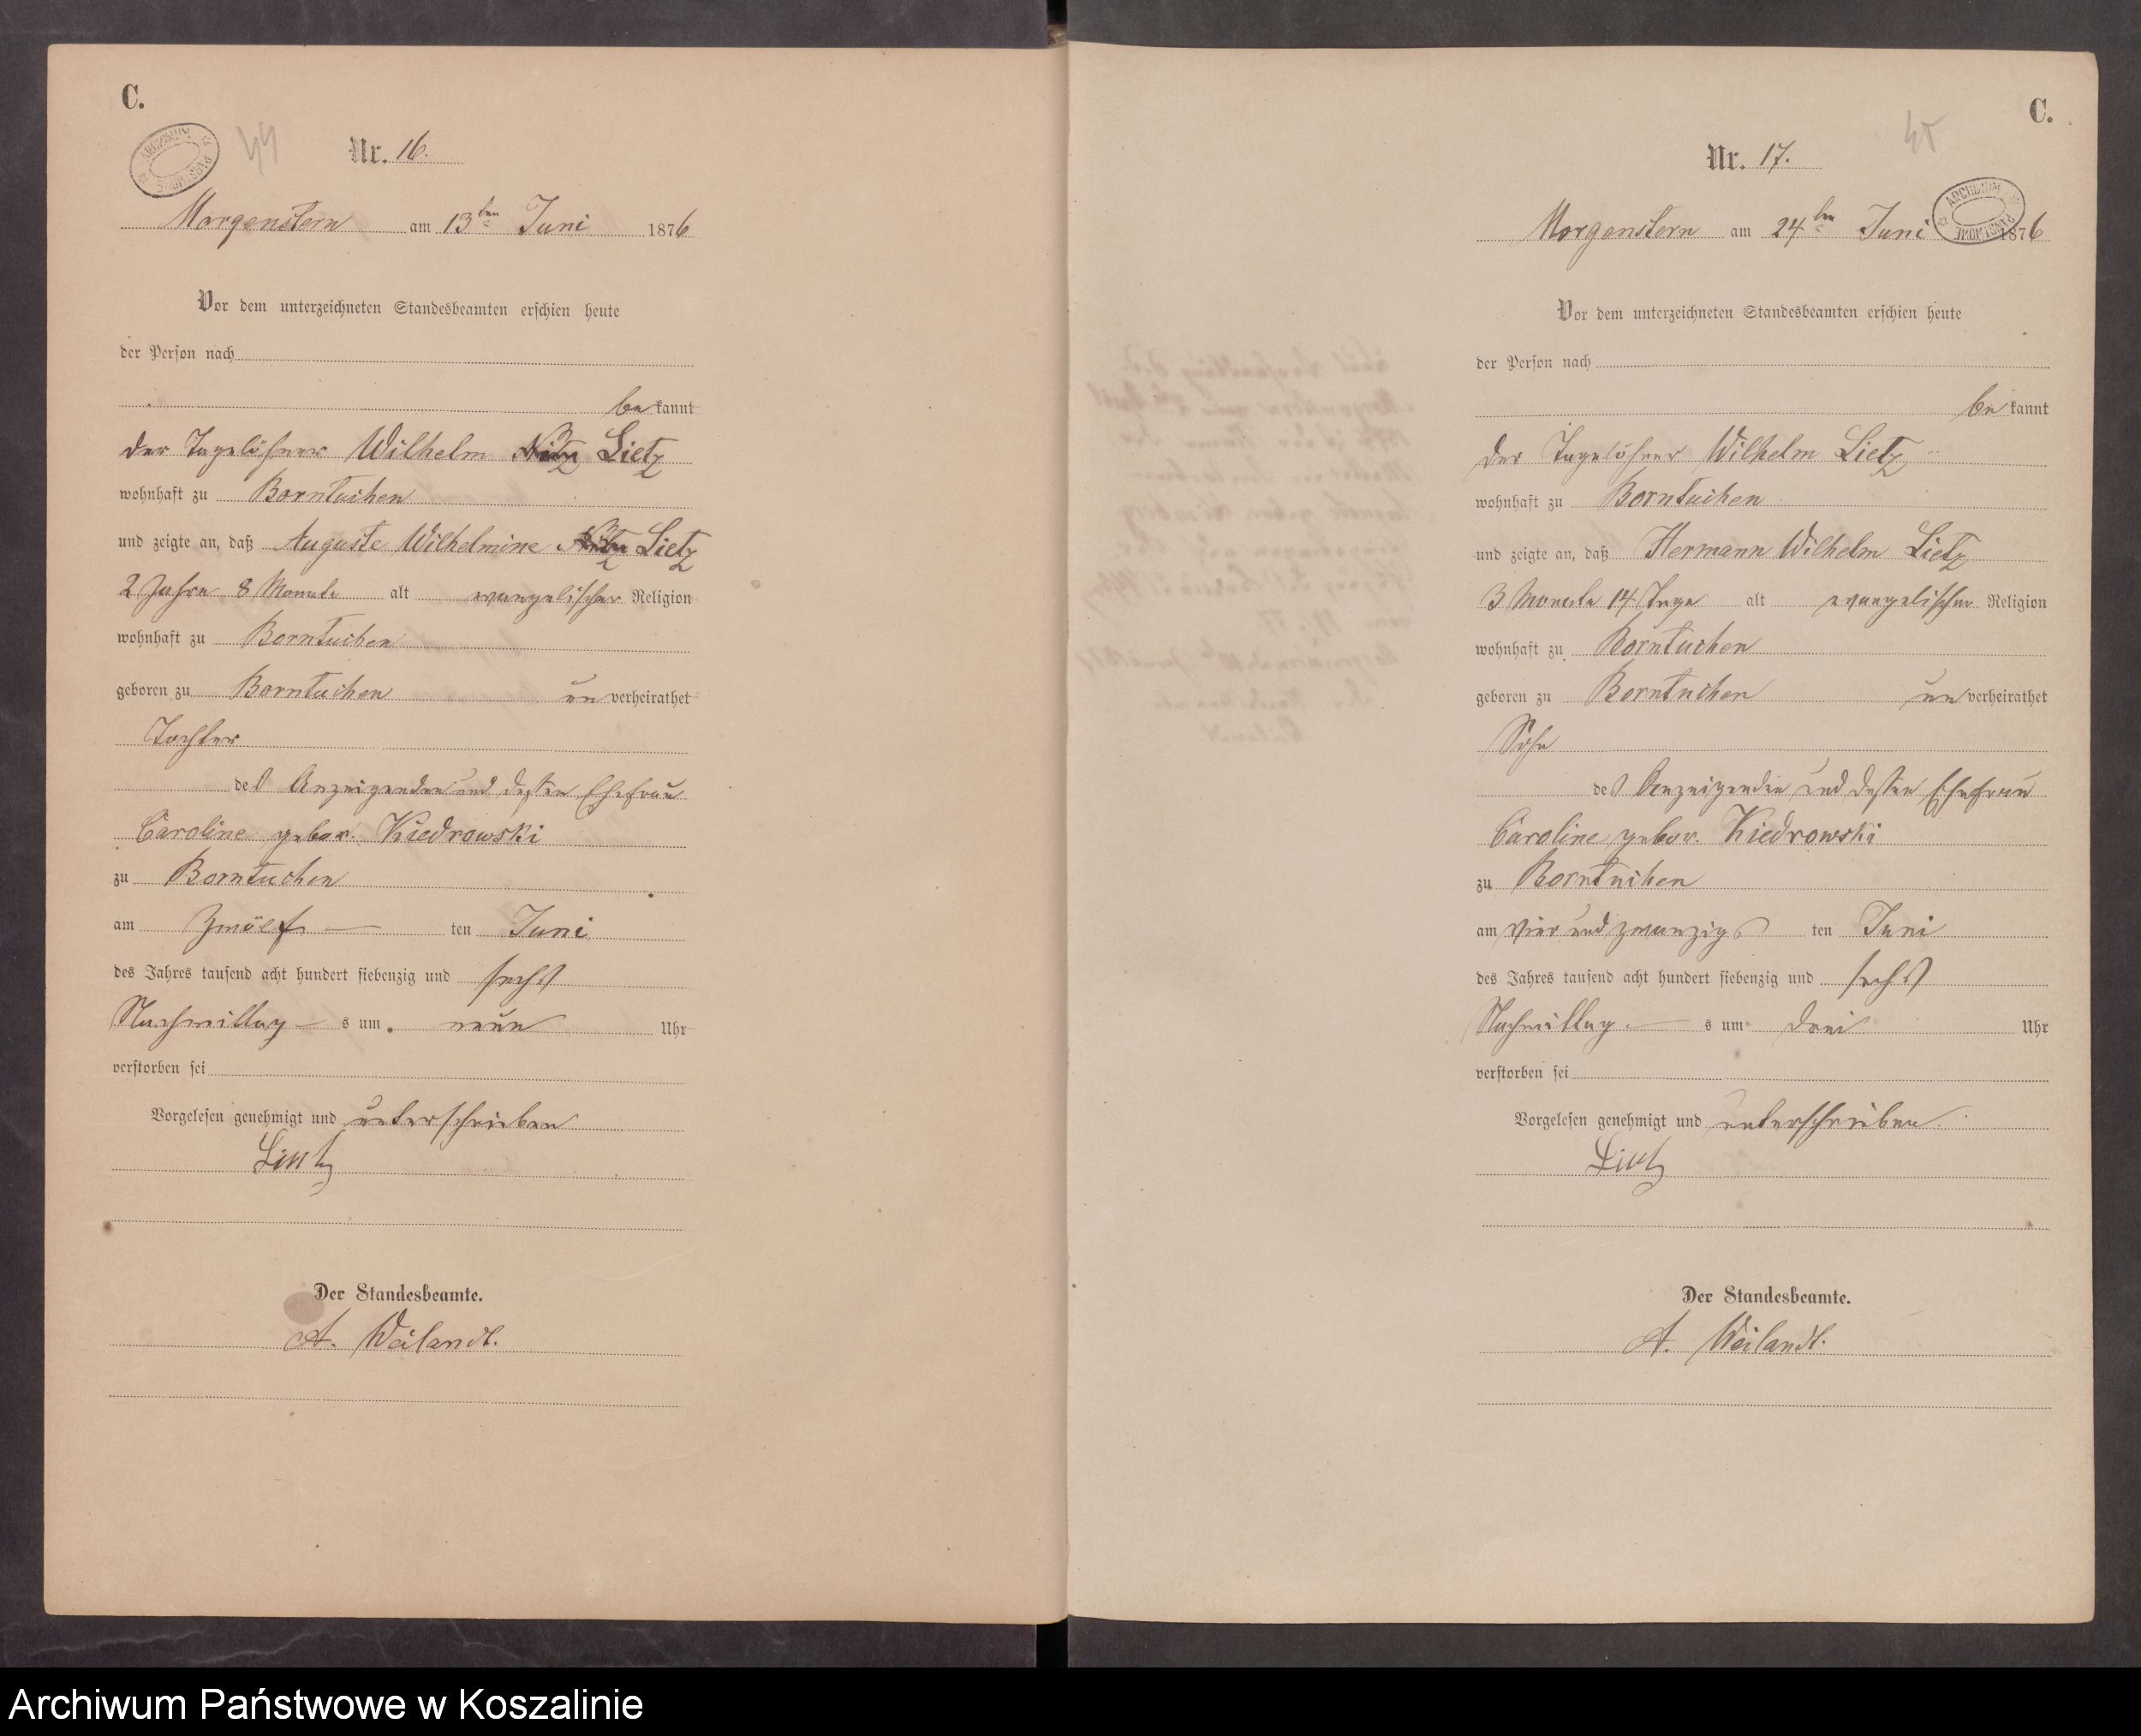 C.
44
Nr. 16.
Morgenstern am 13ten Juni 1876
Vor dem unterzeichneten Standesbeamten erschien heute
der Person nach
be kannt
der Tagelöhner Wilhelm Lietz
wohnhaft zu Borntuchen
und zeigte an, daß Auguste Wilhelmine Lietz
2 Jahre 8 Monate alt evangelischer Religion
wohnhaft zu Borntuchen
geboren zu Borntuchen un verheirathet
Tochter
des Anzeigenden und dessen Ehefrau
Caroline gebor. Kiedrowski
zu Borntuchen
am Zwölf — ten Juni
des Jahres tausend acht hundert siebenzig und sechs
Nachmittag — s um neun Uhr
verstorben sei
Vorgelesen genehmigt und unterschrieben
Lietz
Der Standesbeamte.
A. Weilandt.
C.
45
Nr. 17.
Morgenstern am 24ten Juni 1876
Vor dem unterzeichneten Standesbeamten erschien heute
der Person nach
be kannt
der Tagelöhner Wilhelm Lietz
wohnhaft zu Borntuchen
und zeigte an, daß Hermann Wilhelm Lietz
3 Monate 14 Tage alt evangelischer Religion
wohnhaft zu Borntuchen
geboren zu Borntuchen un verheirathet
Sohn
des Anzeigenden und dessen Ehefrau
Caroline gebor. Kiedrowski
zu Borntuchen
am vier und zwanzigs ten Juni
des Jahres tausend acht hundert siebenzig und sechs
Nachmittag — s um drei Uhr
verstorben sei
Vorgelesen genehmigt und unterschrieben.
Lietz
Der Standesbeamte.
A. Weilandt.
Archiwum Państwowe w Koszalinie